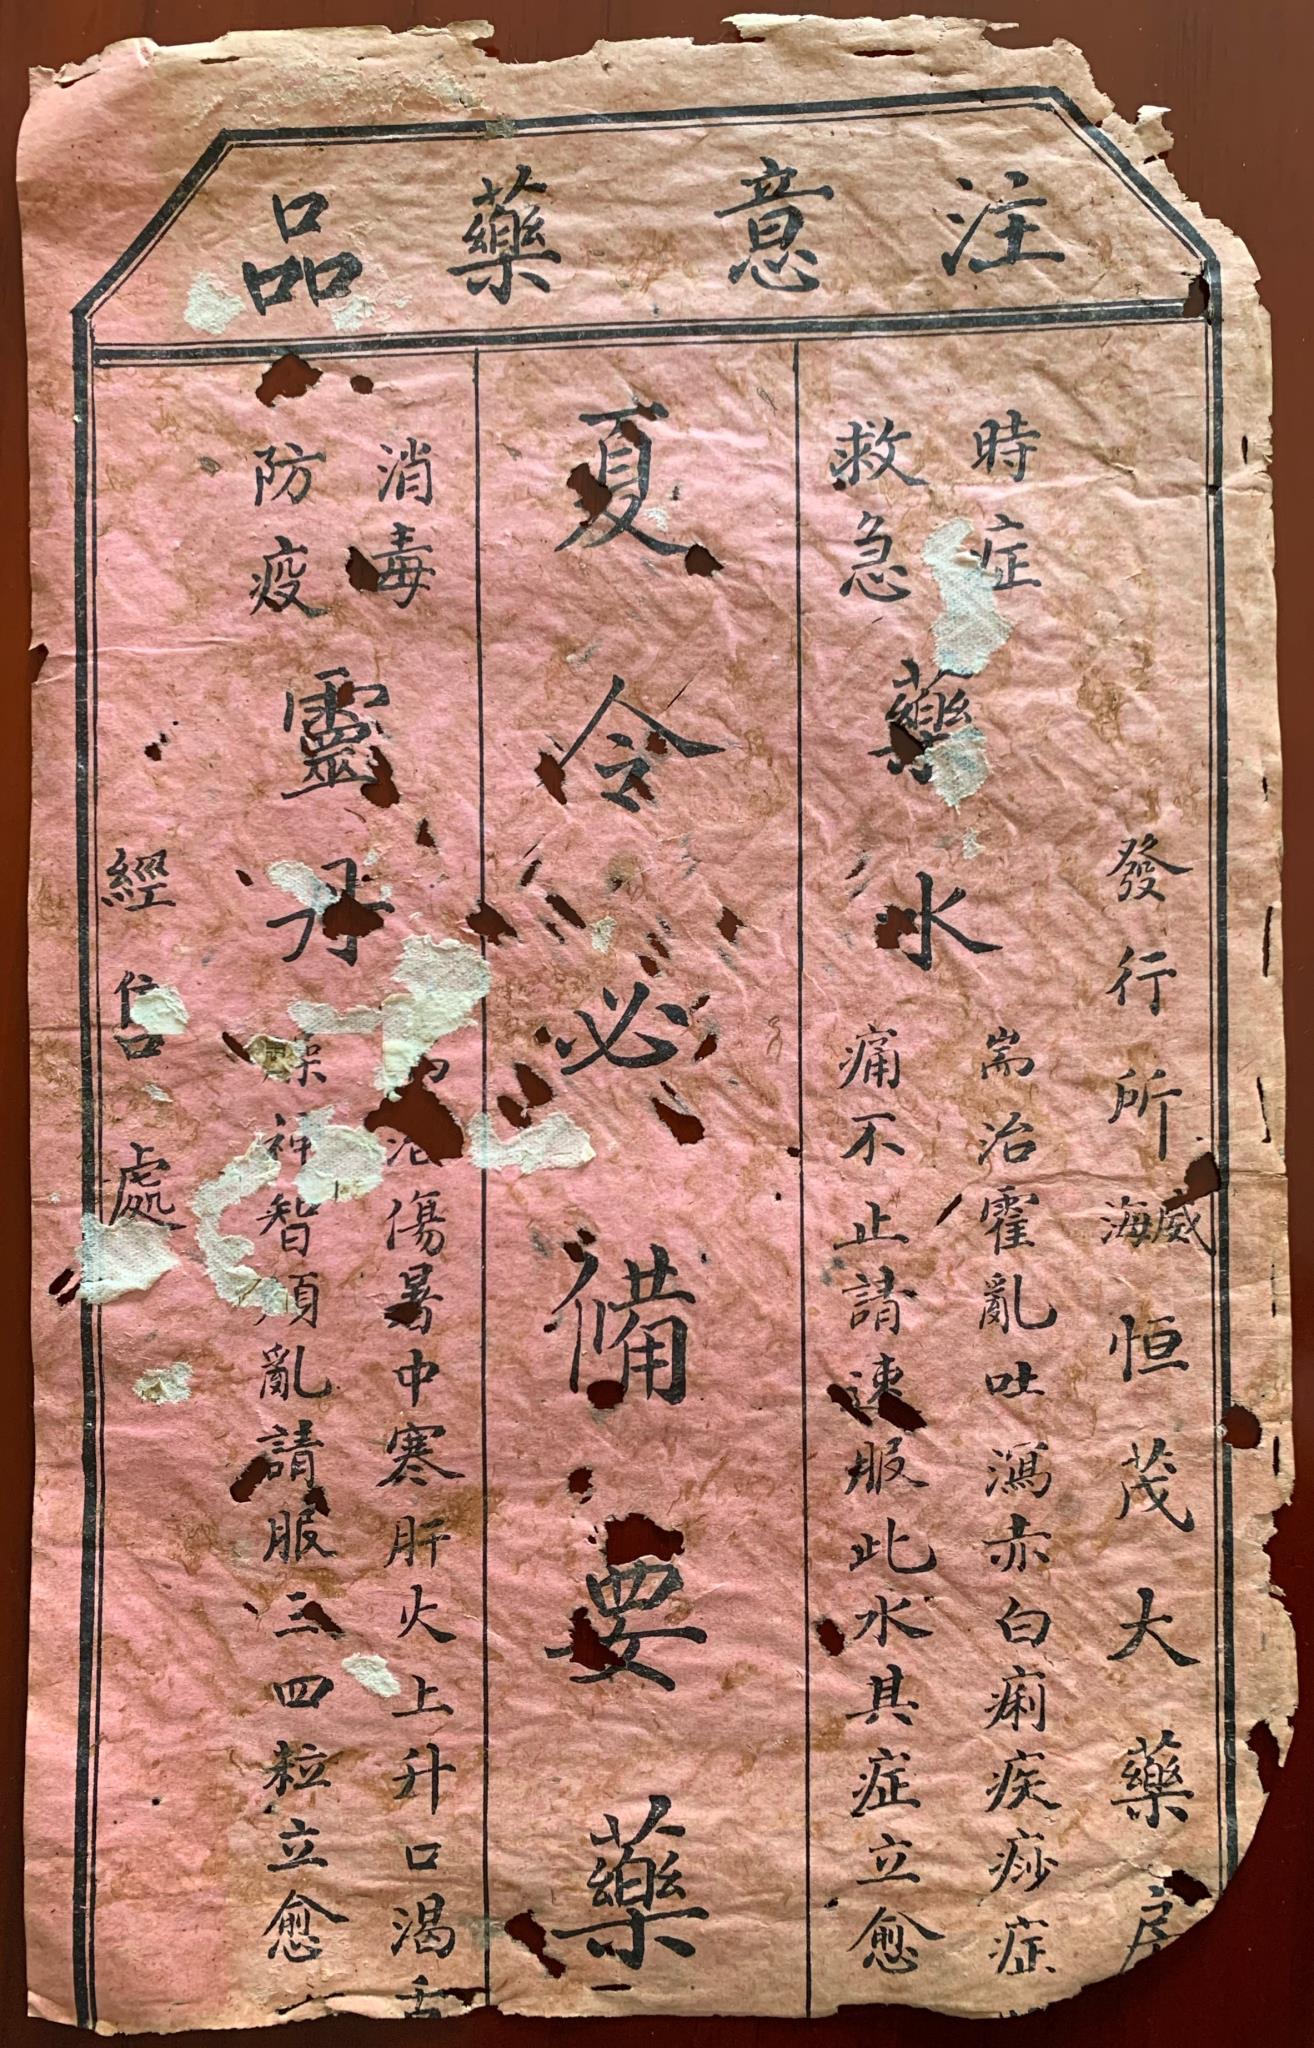 注意藥品
發行所威海恒茂大藥房
時症
救急
藥水
耑治霍亂吐瀉赤白痢疾痧症
痛不止請速服此水其症立愈
夏令必備要藥
消毒
防疫
靈丹
治傷暑中寒肝火上升口渴舌
燥神智煩亂請服三四粒立愈
經售處